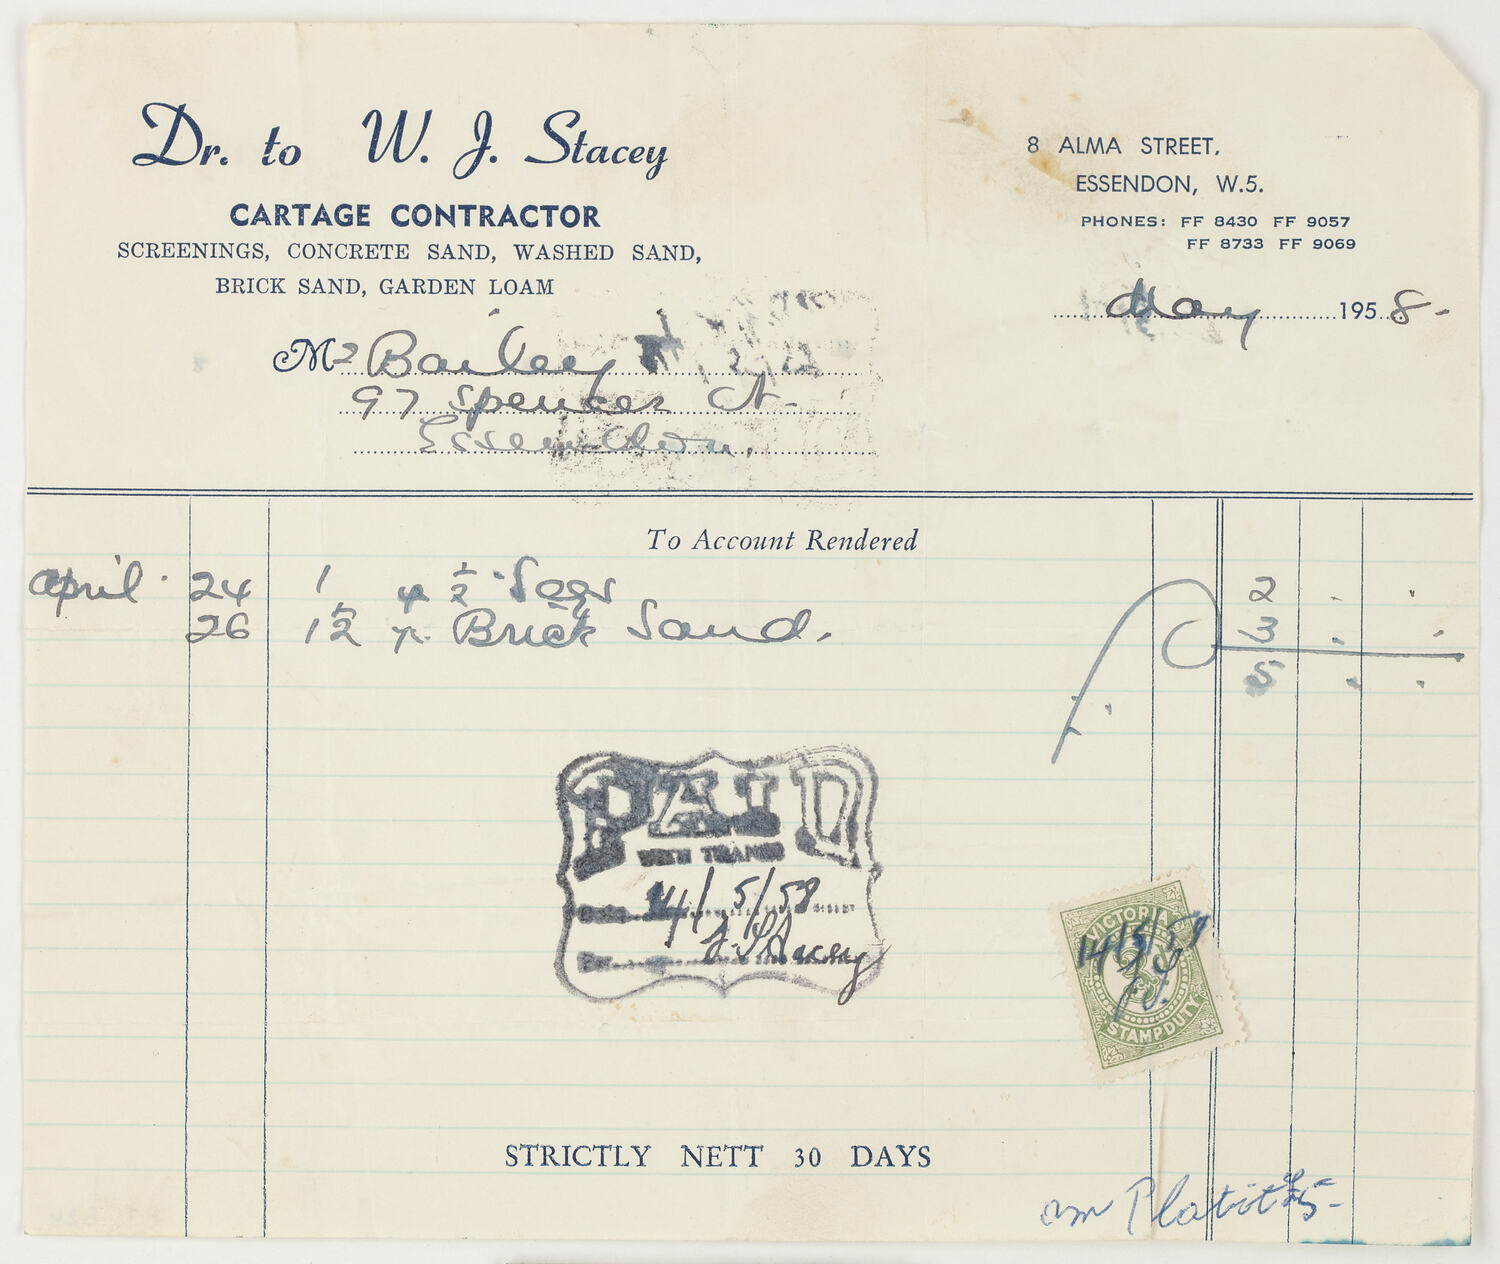 Dr. to W. J. Stacey
CARTAGE CONTRACTOR
SCREENINGS, CONCRETE SAND, WASHED SAND,
BRICK SAND, GARDEN LOAM
8 ALMA STREET,
ESSENDON, W.5.
PHONES: FF 8430 FF 9057
FF 8733 FF 9069
May 1958-
Mr Bailey
97 Spencer St.
Essendon.
To Account Rendered
April 24 1 y 1/2 Scgs 2 . .
26 1 1/2 y. Brick Sand. 3 . .
5 . .
PAID
WITH THANKS
Date 14/5/58
J. Stacey
VICTORIA
14/5/58
3
STAMP DUTY
STRICTLY NETT 30 DAYS